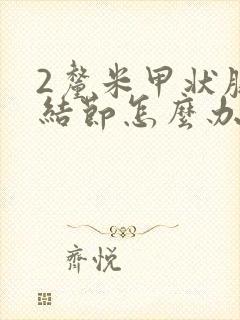 2釐米甲狀腺
結節怎麼办
齊悅